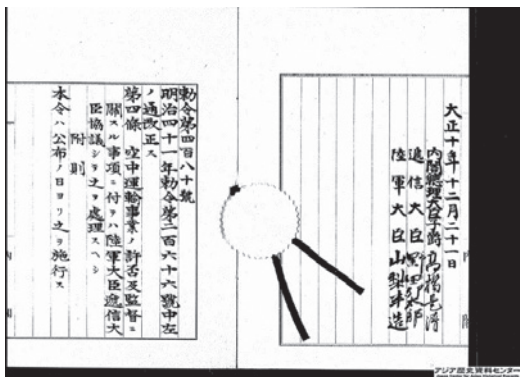 大正十年十二月二十一日
內閣總理大臣子爵高橋是清
遞信大臣野田卯太郎
陸軍大臣山梨半造
勅令第四百八十號
明治四十一年勅令第二百六十六號中左
ノ通改正ス
第四條 空中運輸事業ノ許否及監督ニ
關スル事項ニ付テハ陸軍大臣遞信大
臣協議シテ之ヲ處理スヘシ
附則
本令ハ公布ノ日ヨリ之ヲ施行ス
アジア歴史資料センター